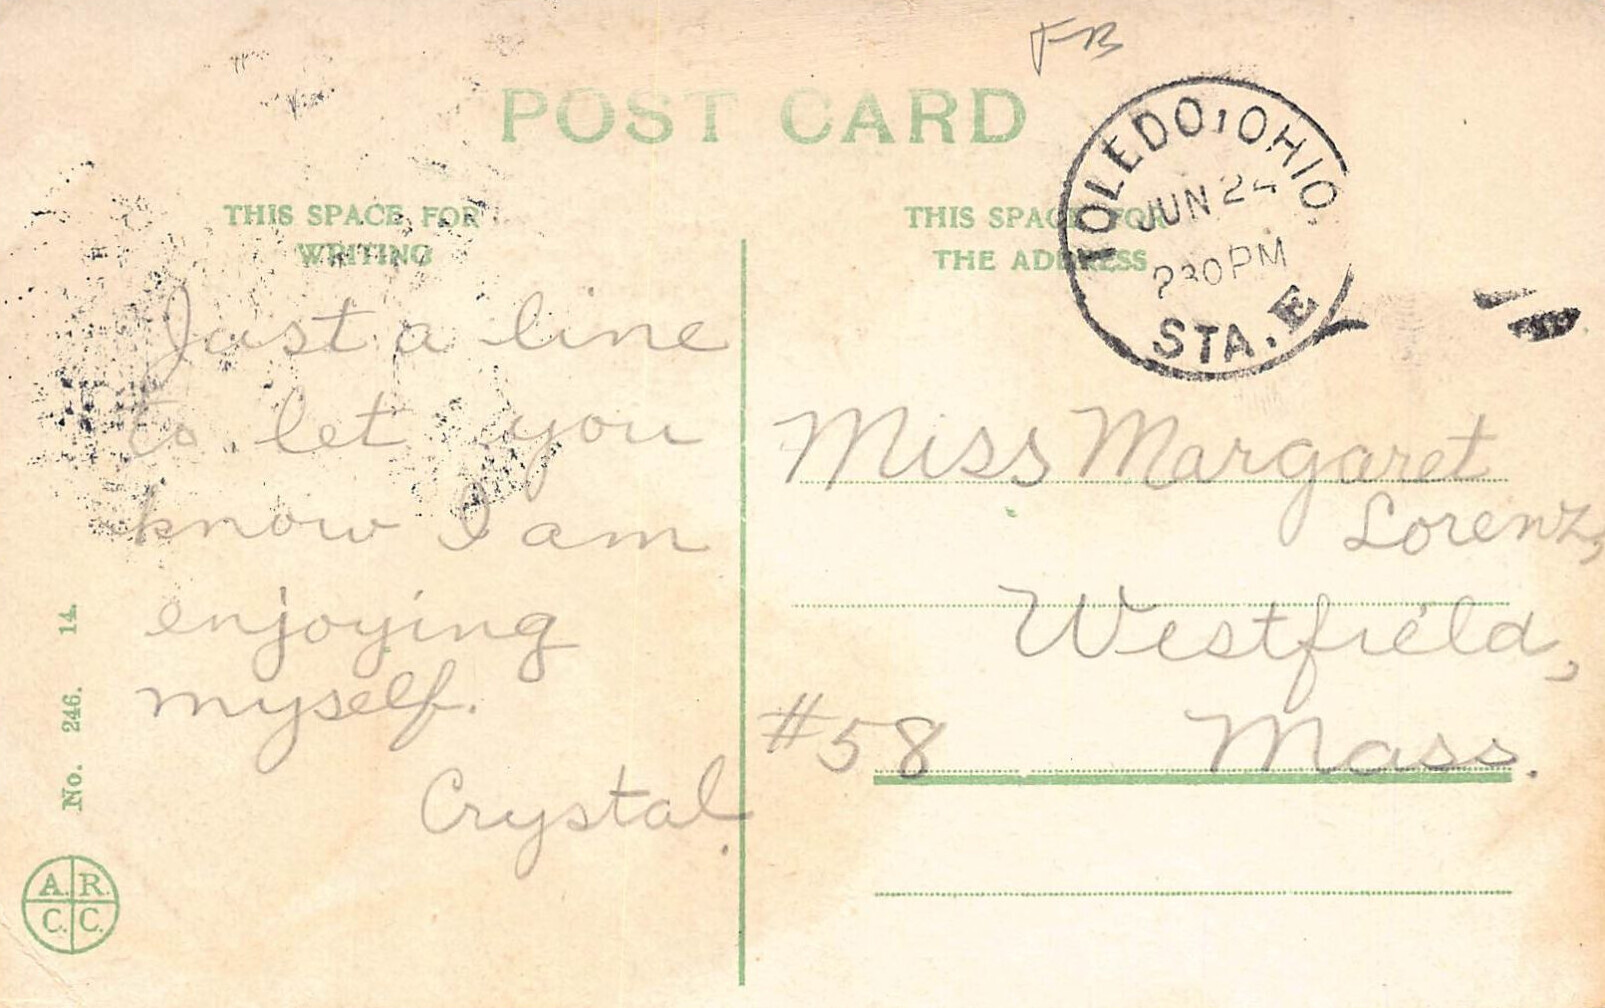 FB
POST CARD
THIS SPACE FOR
WRITING
THIS SPACE FOR
THE ADDRESS
TOLEDO, OHIO.
JUN 24
230PM
STA. E
Just a line
to let you
know I am
enjoying
myself.
Crystal.
Miss Margaret
Lorenz,
Westfield,
#58 Mass.
No. 246. 14.
A. R.
C. C.